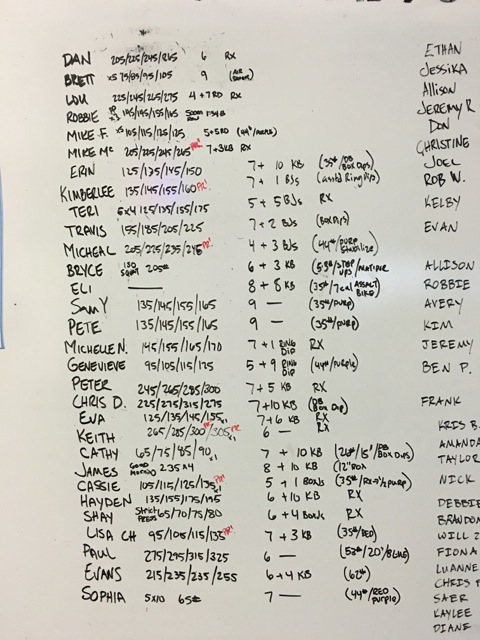 DAN 205/225/245/265 6 RX
BRETT x5 75/85/95/105 9
LOU 225/245/265/275 4+7RD RX
ROBBIE
MIKE F. x5 105/115/125/125 5+5RD
MIKE MC 205/225/245/265 PR! 7+3KB RX
ERIN 125/135/145/150 7+10 KB (35#/DB BOX DIPS)
KIMBERLEE 135/145/155/160 PR! 7+1 BJs (asstd Ring Dips)
TERI 5x4 125/135/155/175 5+5 BJs RX
TRAVIS 155/185/205/225 7+2 BJs (BOX DIPS)
MICHEAL 205/225/235/245 PR! 4+3 BJs (44#/PURP
BRYCE 130 SQUAT 205# 6+3 KB (53#/STEP UPS/
ELI — 8+8 KB (35#/7cal ASSALT BIKE)
SAM Y 135/145/155/165 9 — (35#/PURP)
PETE 135/145/155/165 9 — (35#/PURP)
MICHELLE N. 145/155/165/170 7+1 RING DIP RX
GENEVIEVE 95/105/115/125 5+9 RING DIP (44#/PURPLE)
PETER 245/265/285/300 7+5 KB RX
CHRIS D. 225/275/315/275 7+10KB (DB BOX DIP)
EVA 125/135/145/155 x1 7+6 KB RX
KEITH 265/285/300 PR/305 PR x1 6 — RX
CATHY 65/75/85/90 x1 7+10 KB (26#/15"/DB BOX DIPS)
JAMES GOOD MORNING 235x4 8+10 KB (12" BOX
CASSIE 105/115/125/135 PR! x1 5+1 BOXJs (35#/RX→1/2 PURP)
HAYDEN 135/155/175/195 6+10 KB RX
SHAY STRICT PRESS 65/70/75/80 6+4 BOXJs RX
LISA CH 95/105/115/135 PR! 7+3 KB (35#/RED)
PAUL 275/295/315/325 6 — (53#/20"/BLUE)
EVANS 215/235/235/255 6+4 KB (62#)
SOPHIA 5x10 65# 7 — (44#/RED PURPLE)
ETHAN
JESSIKA
ALLISON
JEREMY R
DON
CHRISTINE
JOEL
ROB W.
KELBY
EVAN
ALLISON
ROBBIE
AVERY
KIM
JEREMY
BEN P.
FRANK
KRIS B.
AMANDA
TAYLOR
NICK
DEBBIE
BRANDON
WILL Z
FIONA
LUANNE
CHRIS
SAER
KAYLEE
DIANE